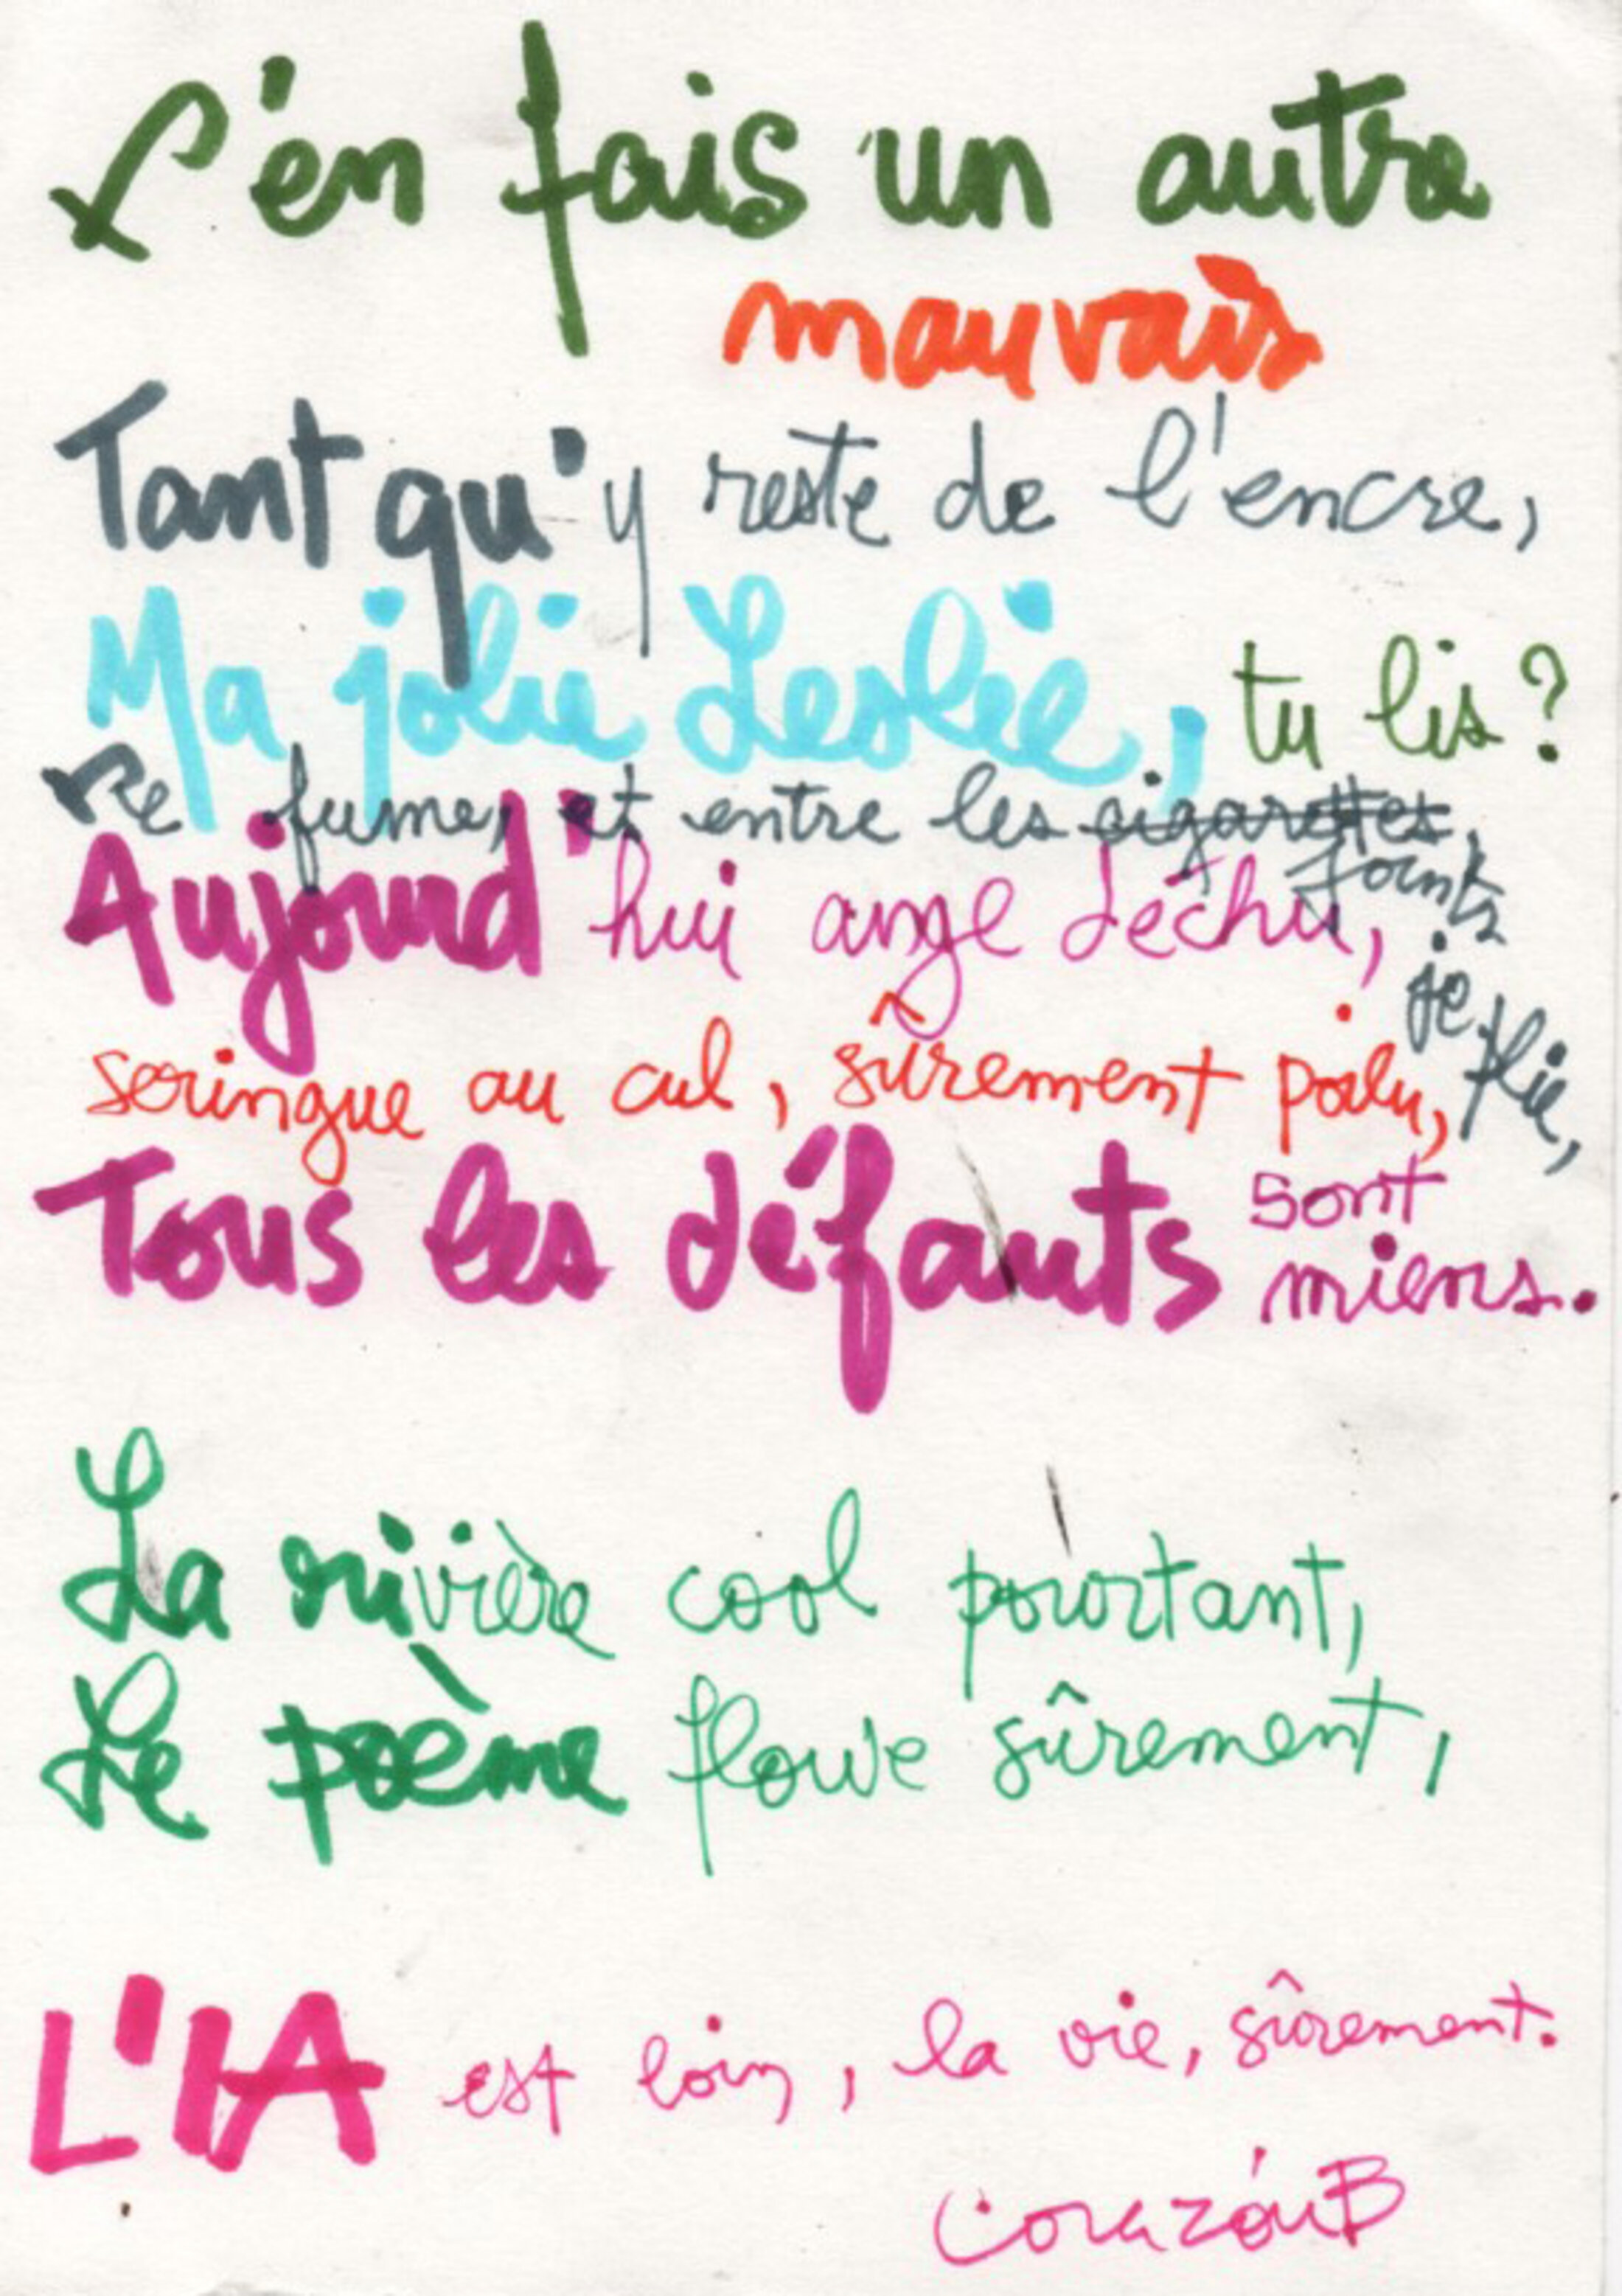 J'en fais un autre
mauvais
Tant qu'y reste de l'encre,
Ma jolie Leslie, tu lis ?
Je fume, et entre les cigarettes,
joints
je plie,
Aujourd'hui ange déchu,
seringue au cul, sûrement palu,
Tous les défauts sont
miens.
La rivière cool pourtant,
Le poème flowe sûrement,
L'IA est loin, la vie, sûrement.
CorazónB